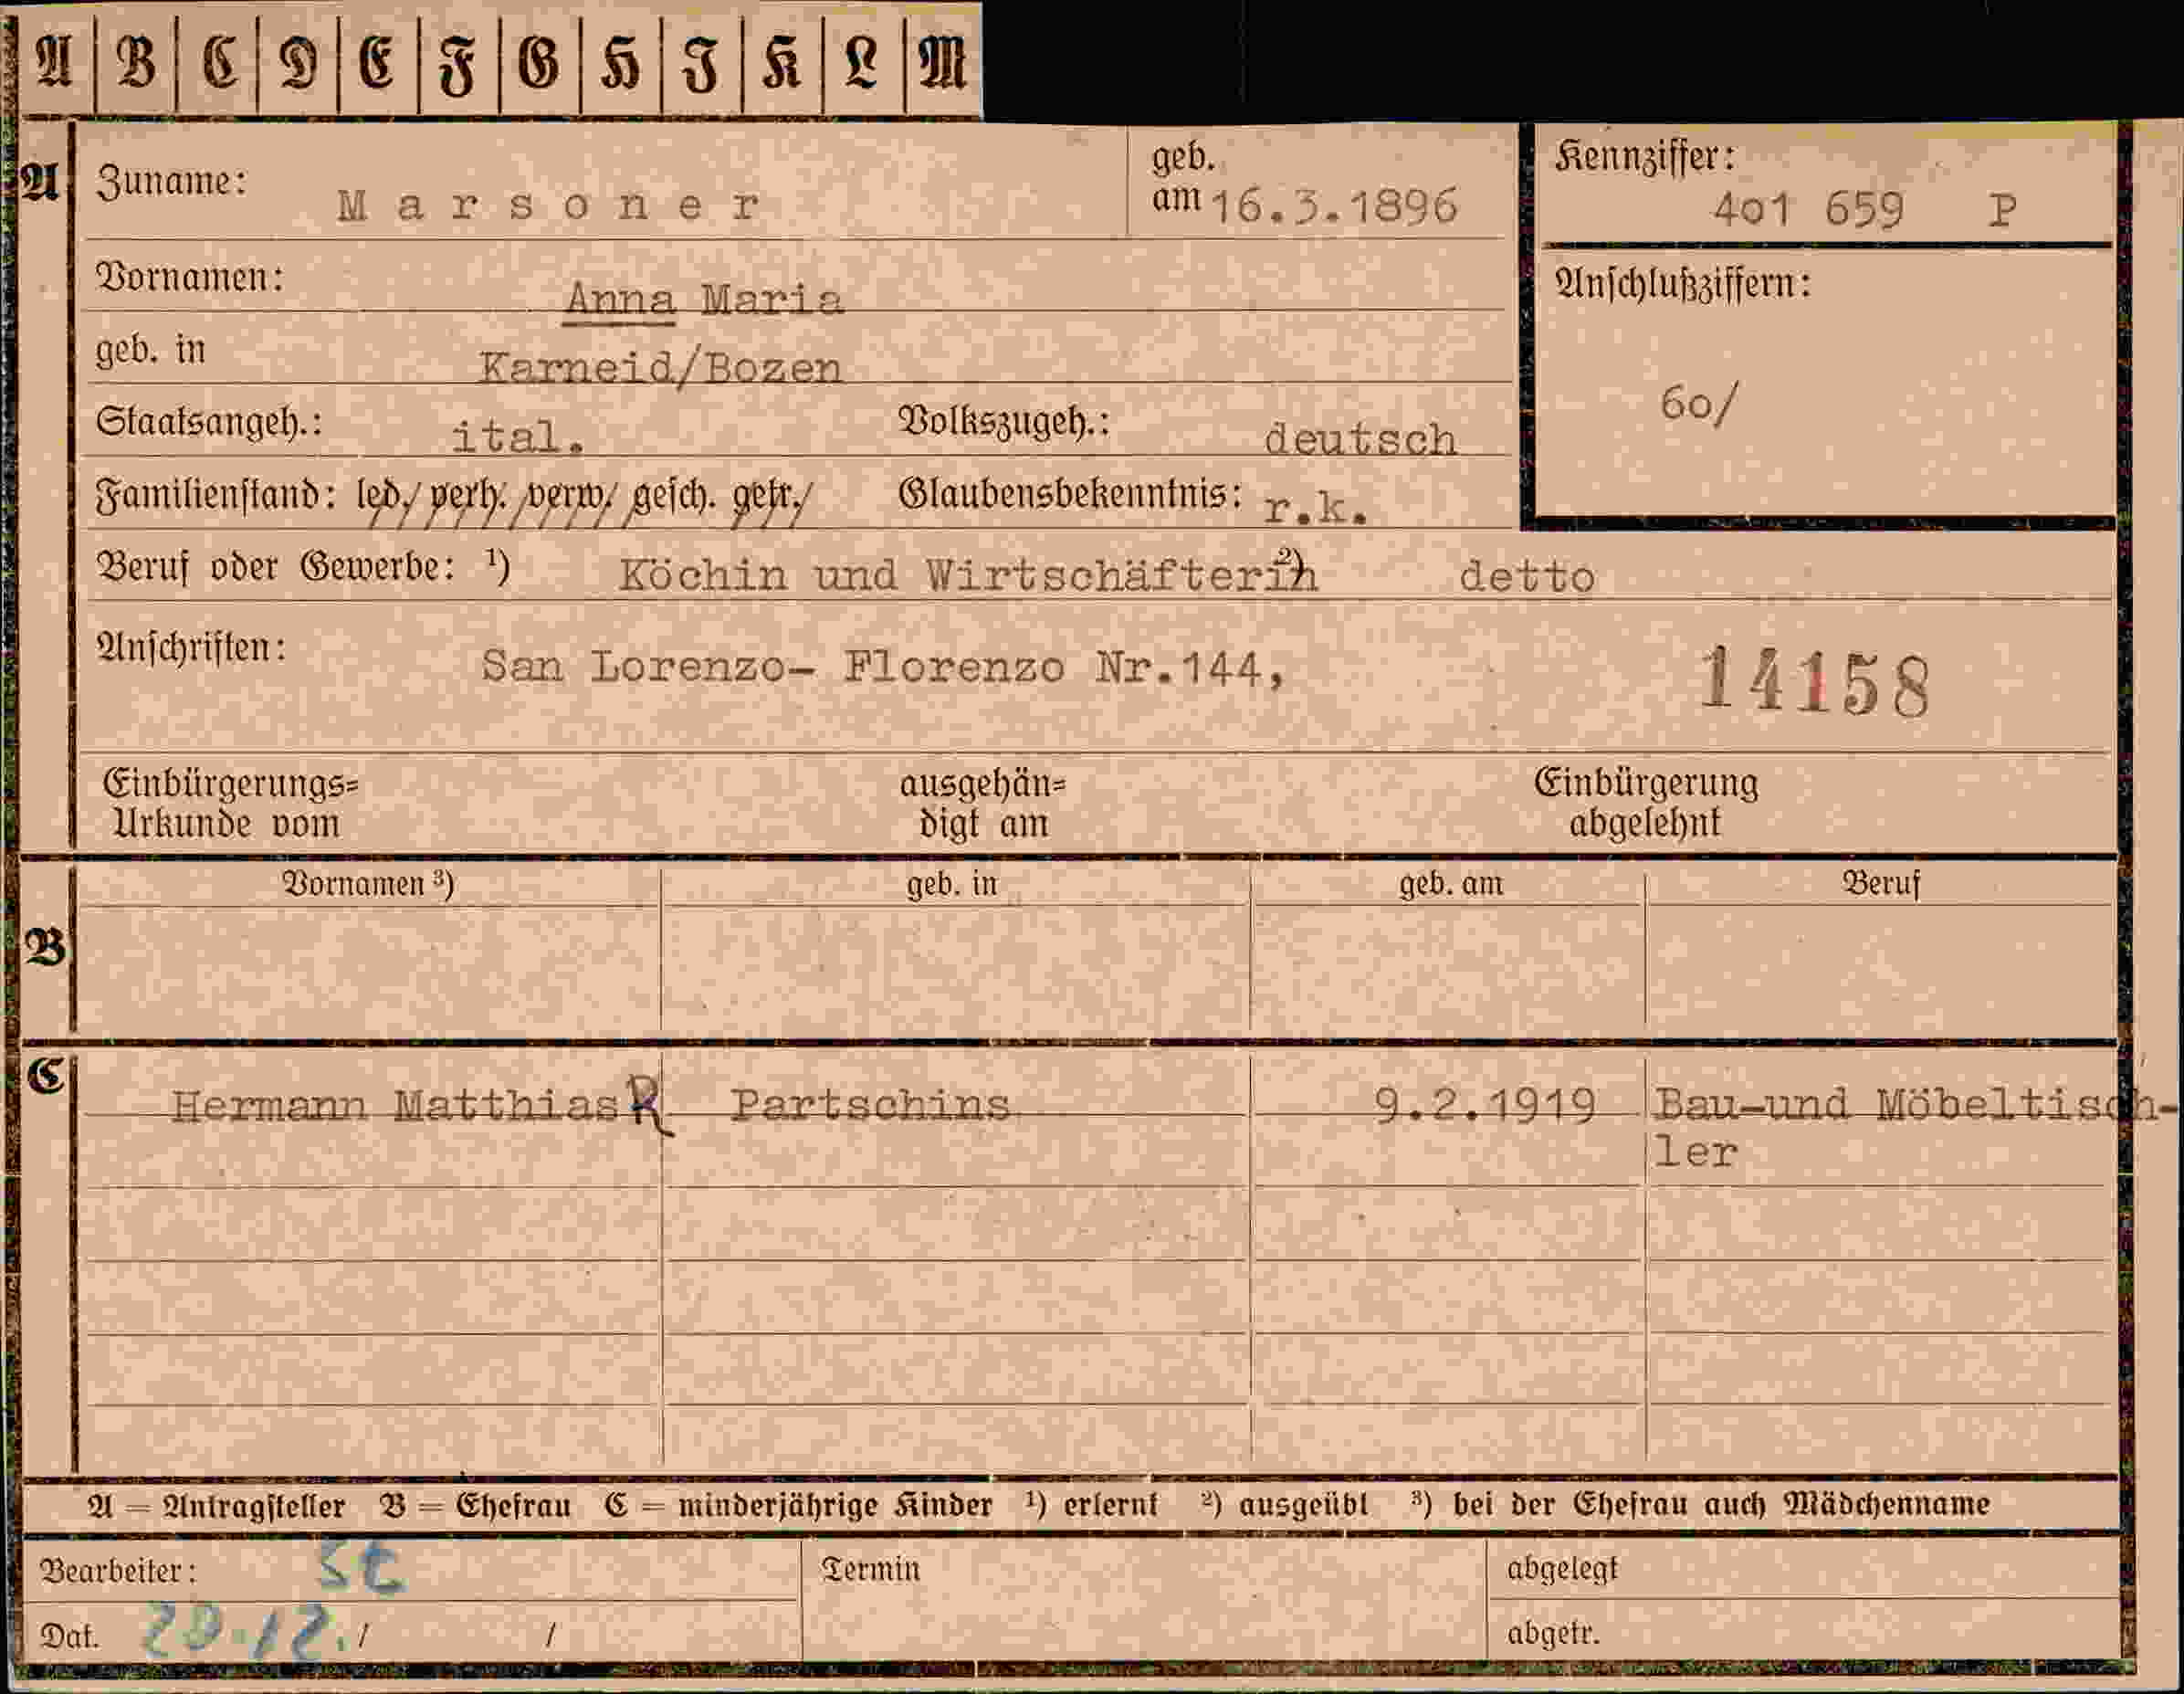 A B C D E F G H I K L M
A
Zuname: Marsoner
geb. am 16.3.1896
Kennziffer: 401 659 P
Vornamen: Anna Maria
Anschlußziffern: 60/
geb. in Karneid/Bozen
Staatsangeh.: ital. Volkszugeh.: deutsch
Familienstand: led./ verh. /verw./ gesch. getr./ Glaubensbekenntnis: r.k.
Beruf oder Gewerbe: ¹) Köchin und Wirtschäfterin ²) detto
Anschriften: San Lorenzo- Florenzo Nr.144,
14158
Einbürgerungs= ausgehän= Einbürgerung
Urkunde vom digt am abgelehnt
Vornamen ³) geb. in geb. am Beruf
B
C
Hermann Matthias R Partschins 9.2.1919 Bau-und Möbeltisch-
ler
A = Antragsteller B = Ehefrau C = minderjährige Kinder ¹) erlernt ²) ausgeübt ³) bei der Ehefrau auch Mädchenname
Bearbeiter: St Termin abgelegt
Dat. / / abgetr.